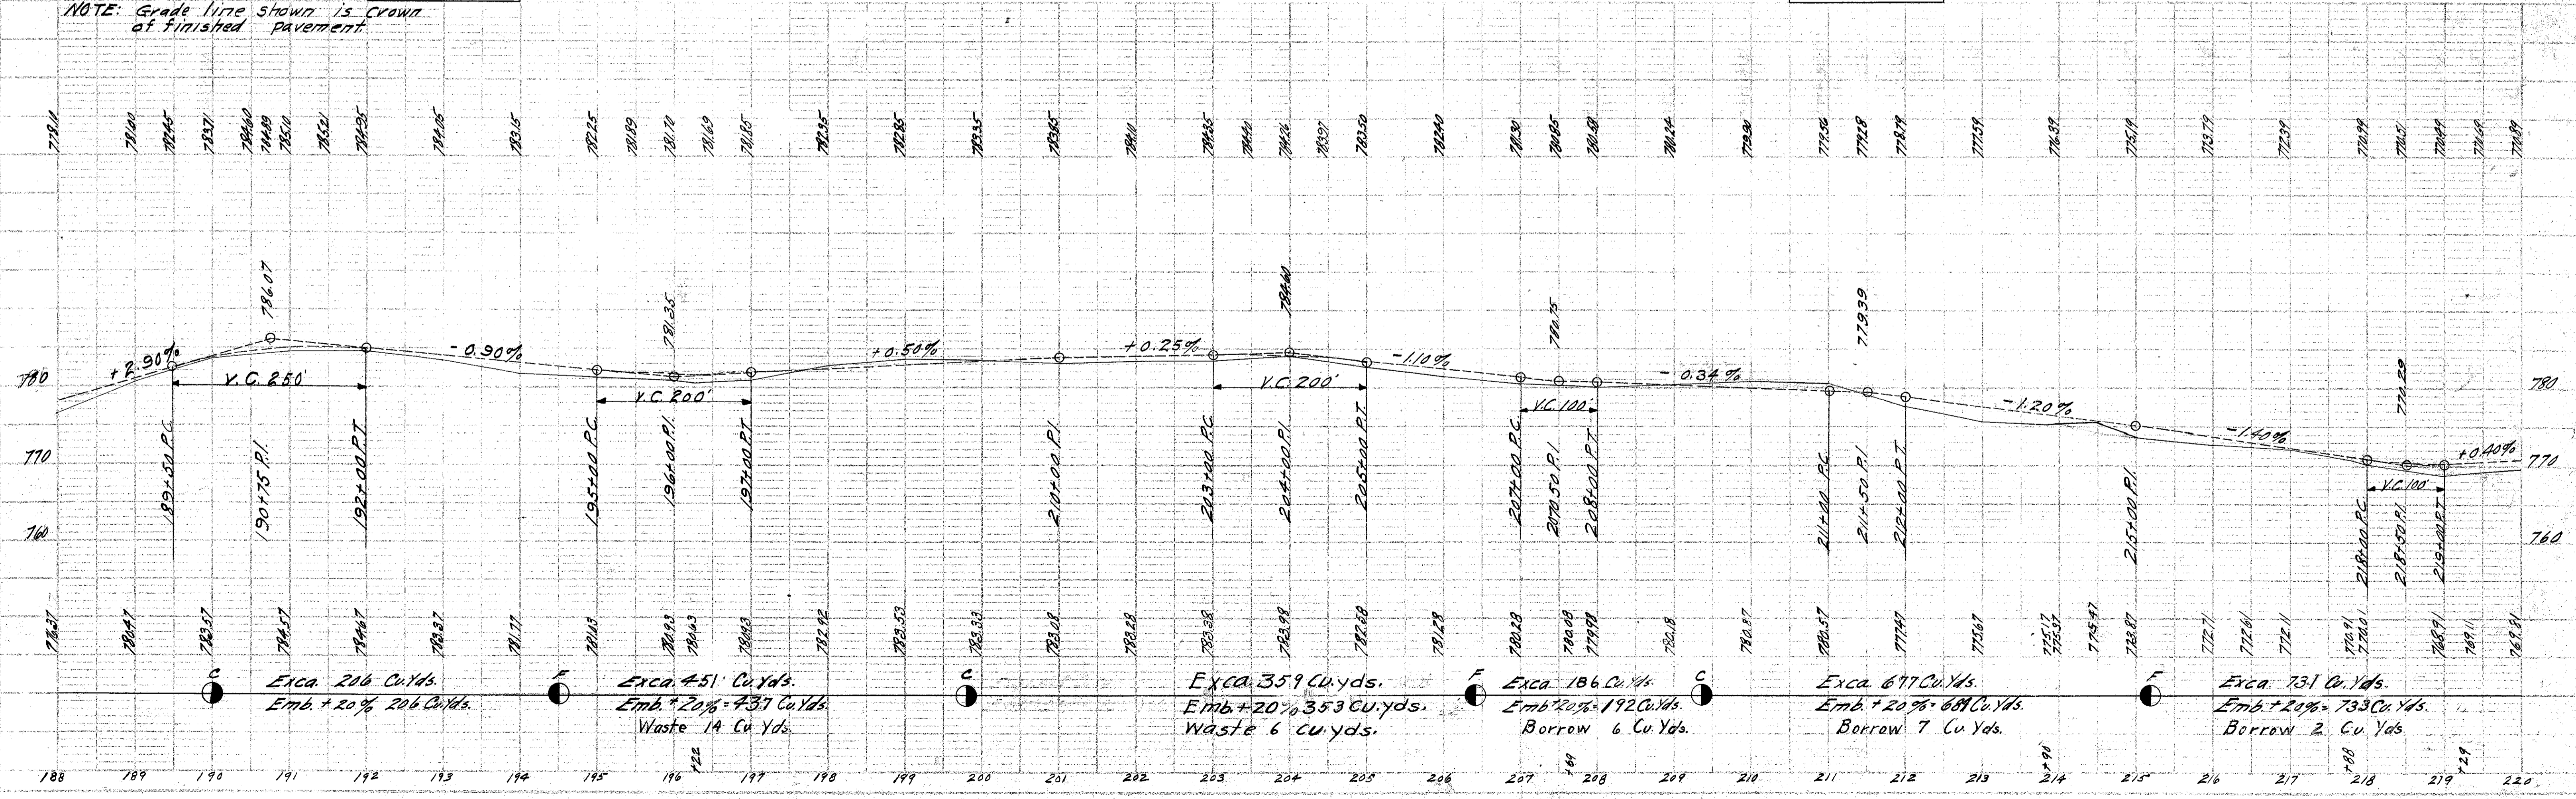 NOTE: Grade line shown is Crown
of finished pavement
778.11 781.00 782.45 783.71 784.60 784.89 785.10 785.21 784.95 784.05 783.15 782.25 781.89 781.70 781.69 781.85 782.35 782.85 783.35 783.85 784.10 784.35 784.40 784.26 783.97 783.50 782.40 781.30 780.85 780.58 780.24 779.90 779.56 779.28 778.79 777.59 776.39 775.19 773.79 772.39 770.99 770.51 770.49 770.69 770.89
786.07 781.35 784.60 780.75 779.39 770.29
+2.90% -0.90% +0.50% +0.25% -1.10% -0.34% -1.20% -1.40% +0.40%
780 V.C. 250' V.C. 200' V.C. 200' V.C. 100' 780
770 V.C. 100' 770
760 760
189+50 P.C.
190+75 P.I.
192+00 P.T.
195+00 P.C.
196+00 P.I.
197+00 P.T.
210+00 P.I.
203+00 P.C.
204+00 P.I.
205+00 P.T.
207+00 P.C.
2070.50 P.I.
208+00 P.T.
211+00 P.C.
211+50 P.I.
212+00 P.T.
215+00 P.I.
218+00 P.C.
218+50 P.I.
219+00 P.T.
776.37 780.47 783.57 784.57 784.67 783.37 781.77 781.03 780.93 780.63 780.93 782.92 783.53 783.33 783.08 783.28 783.38 783.98 782.58 781.28 780.28 780.08 779.98 780.18 780.37 780.57 777.47 775.67 775.17 775.37 775.47 773.87 772.71 772.61 772.11 770.91 770.01 768.91 769.11 769.81
C F C F C F
Exca. 206 Cu.Yds.
Emb. + 20% 206 Cu.Yds.
Exca. 451 Cu.Yds.
Emb. + 20% = 437 Cu.Yds.
Waste 14 Cu Yds.
Exca 359 cu.yds.
Emb.+20% 353 cu.yds.
Waste 6 cu.yds.
Exca 186 Cu.Yds.
Emb+20%=192 Cu.Yds.
Borrow 6 Cu.Yds.
Exca. 677 Cu.Yds.
Emb. + 20% = 684 Cu.Yds.
Borrow 7 Cu. Yds.
Exca. 731 Cu.Yds.
Emb.+20%= 733 Cu.Yds.
Borrow 2 Cu. Yds.
+22 +69 +90 +88 +29
188 189 190 191 192 193 194 195 196 197 198 199 200 201 202 203 204 205 206 207 208 209 210 211 212 213 214 215 216 217 218 219 220